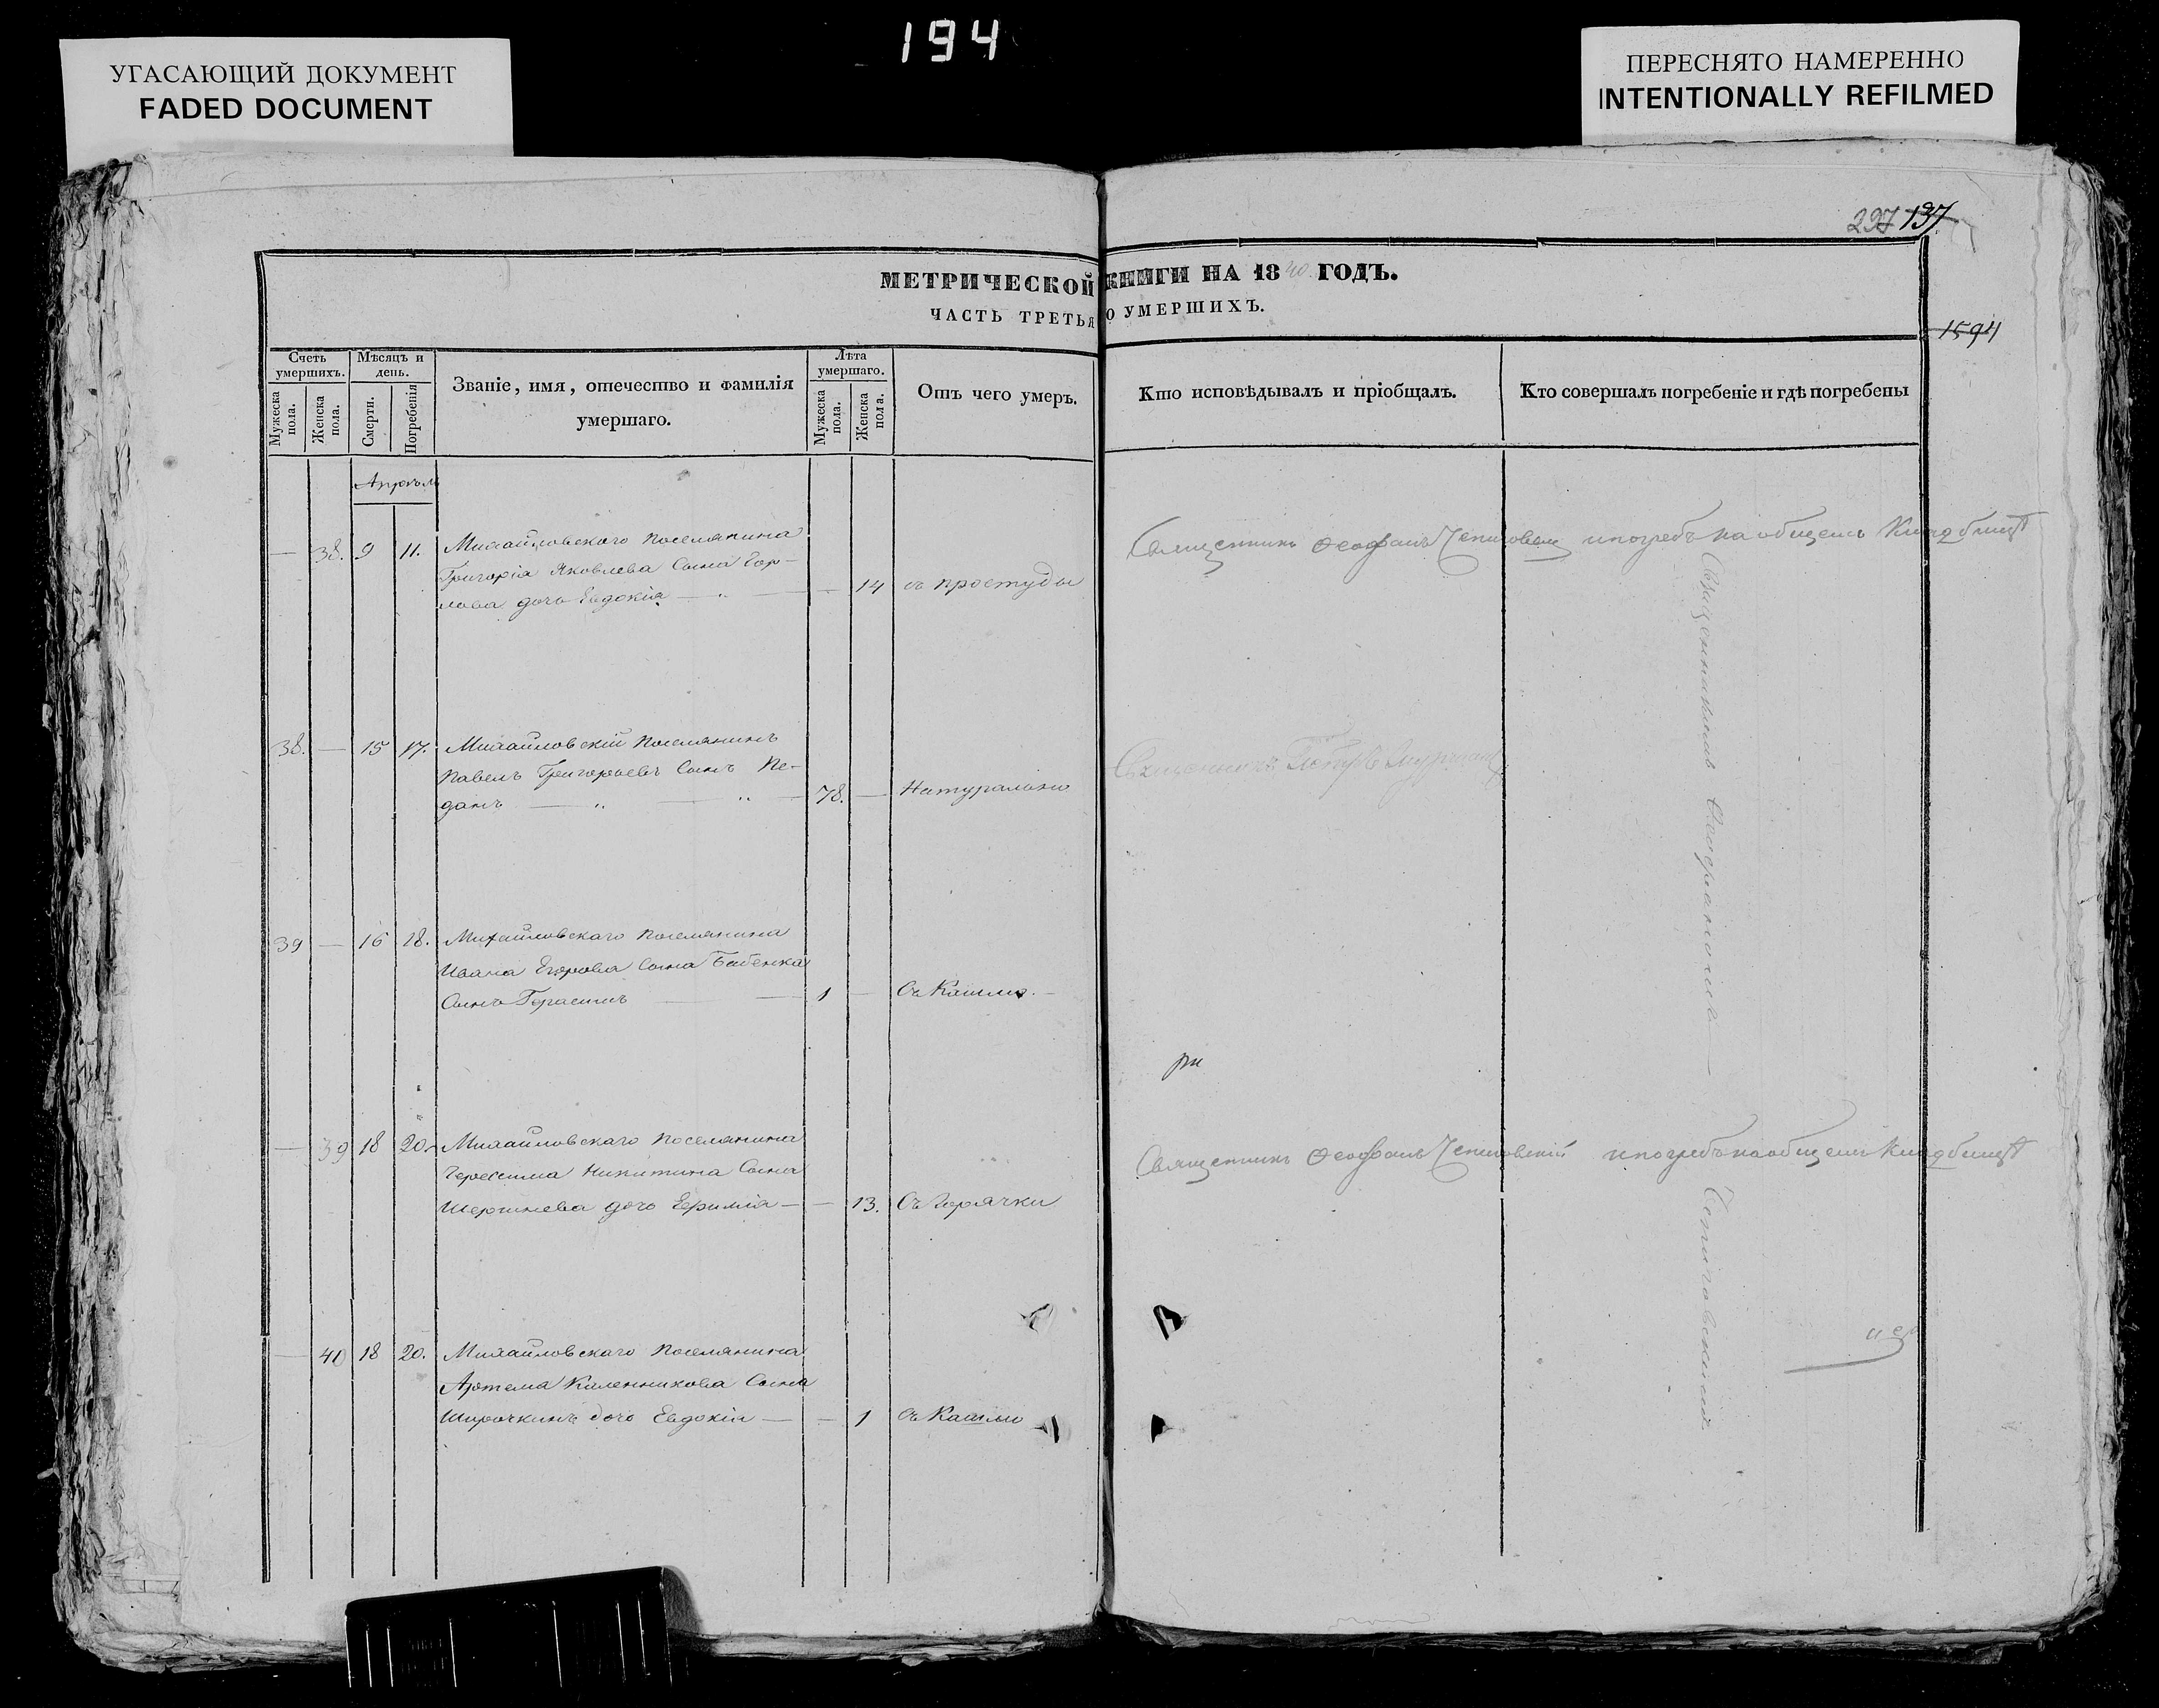 194
УГАСАЮЩИЙ ДОКУМЕНТ
FADED DOCUMENT
ПЕРЕСНЯТО НАМЕРЕННО
INTENTIONALLY REFILMED
297 137
МЕТРИЧЕСКОЙ КНИГИ НА 1840 ГОДЪ.
ЧАСТЬ ТРЕТЬЯ О УМЕРШИХЪ.
1594
Счетъ умершихъ.
Мужеска пола.
Женска пола.
Мѣсяцъ и день.
Смерти.
Погребенія
Званіе, имя, отечество и фамилія
умершаго.
Лѣта умершаго.
Мужеска пола.
Женска пола.
Отъ чего умеръ.
Кто исповѣдывалъ и пріобщалъ.
Кто совершалъ погребеніе и гдѣ погребены
Апрѣль
— 38. 9 11. Михайловскаго поселянина
Григорія Яковлева Сына Гор-
лова дочь Евдокія — 14 съ простуды
Священникъ Феофанъ и погребъ на общемъ Кладбищѣ
38. — 15 17. Михайловскій поселянинъ
Павелъ Григорьевъ Сынъ Пе-
данъ 78. — Натурально
Священникъ Петръ
39 — 16 18. Михайловскаго поселянина
Ивана Егорова Сына Бабенка
Сынъ Герасимъ 1 — Съ Кашлю.
— 39 18 20. Михайловскаго поселянина
Герасима Никитина Сына
дочь Ефимія — 13. Съ Горячки
Священникъ Феофанъ и погребъ на общемъ Кладбищѣ
— 40 18 20. Михайловскаго поселянина
Артема Каленникова Сына
дочь Евдокія — 1 съ Кашлю
Священникомъ